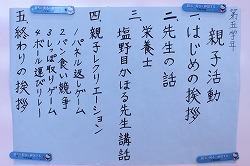 第五学年
親子活動
一.はじめの挨拶
二.先生の話
栄養士
三.塩野目かほる先生講話
四.親子レクリエーション
1パネル返しゲーム
2パン食い競争
3しっぽ取りゲーム
4ボール運びリレー
五.終わりの挨拶